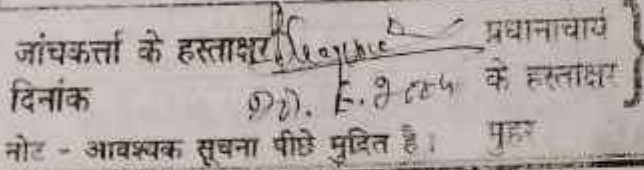 जांचकर्त्ता के हस्ताक्षर प्रधानाचार्य
दिनांक के हस्ताक्षर
नोट - आवश्यक सूचना पीछे मुद्रित है। मुहर